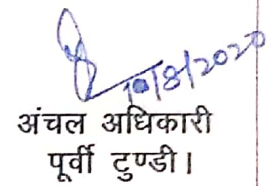 10/8/2020
अंचल अधिकारी
पूर्वी टुण्डी।